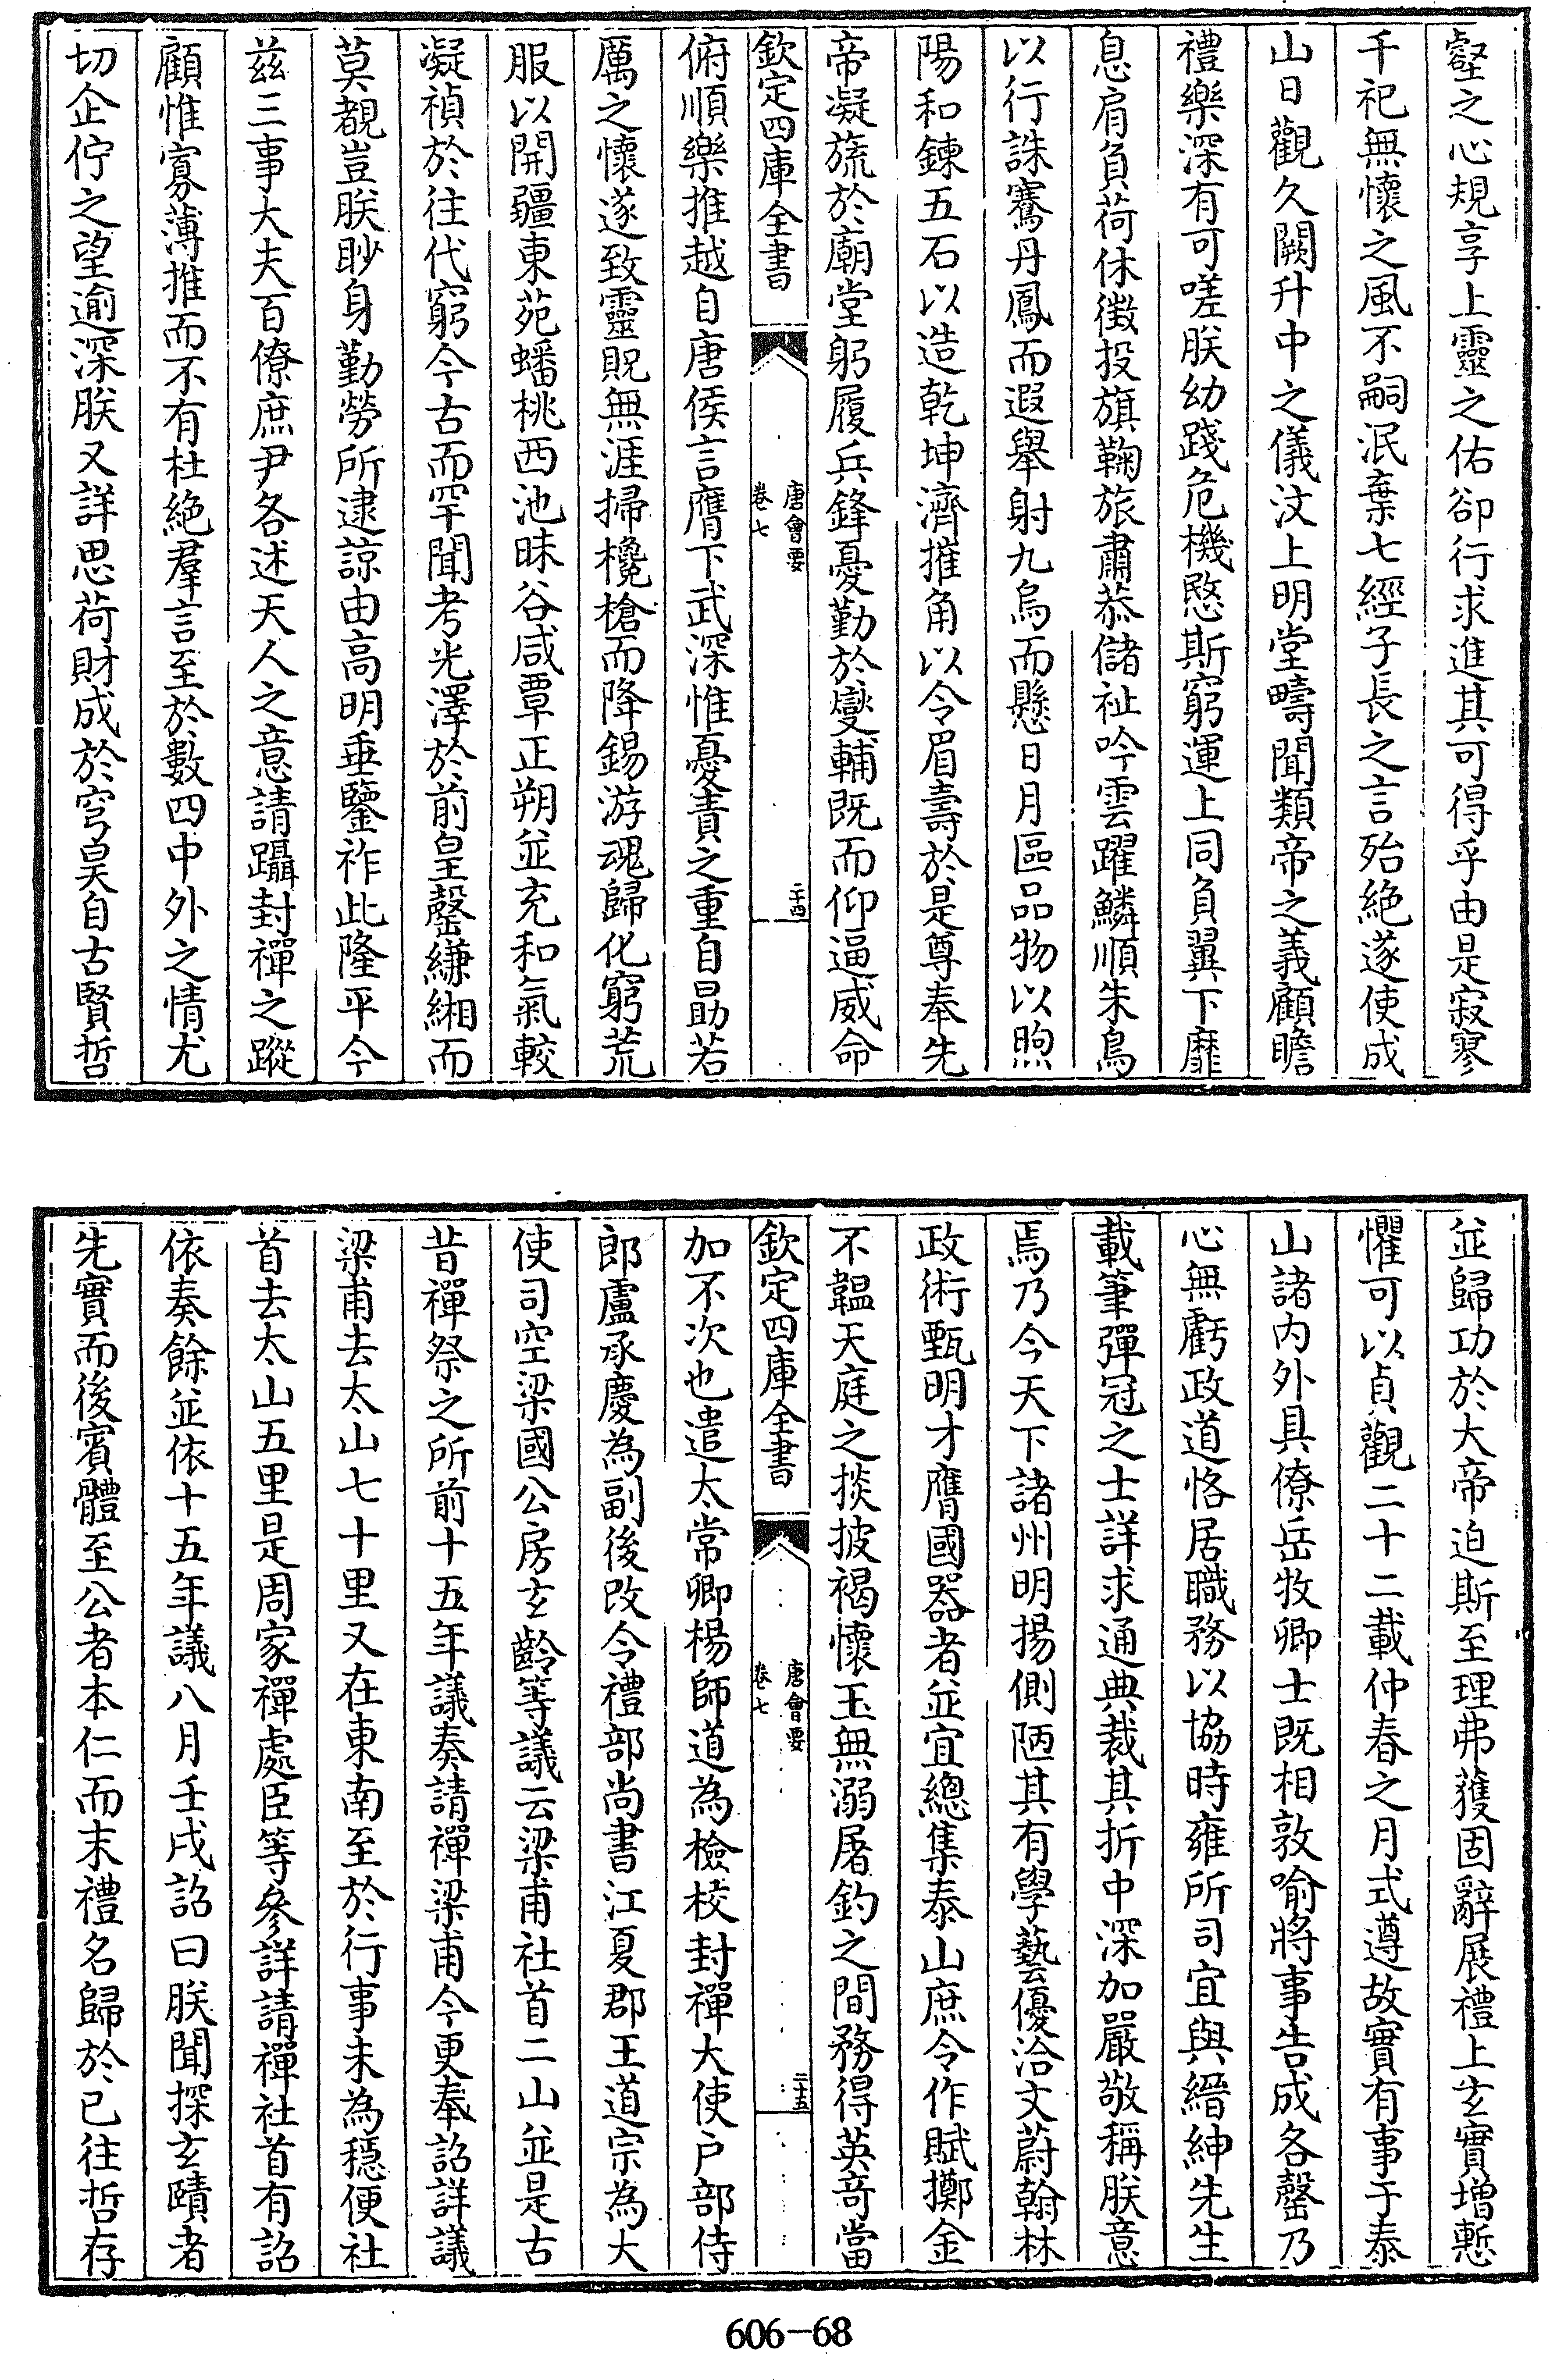 壑之心規享上靈之佑卻行求進其可得乎由是寂寥
千祀無懷之風不嗣泯棄七經子長之言殆絶遂使成
山日觀久闕升中之儀汶上明堂疇聞類帝之義顧瞻
禮樂深有可嗟朕幼踐危機愍斯窮運上同負翼下靡
息肩負荷休徴投旗鞠旅肅恭儲祉吟雲躍鱗順朱鳥
以行誅騫丹鳳而遐舉射九烏而懸日月區品物以煦
陽和鍊五石以造乾坤濟摧角以令眉壽於是尊奉先
帝凝旒於廟堂躬履兵鋒憂勤於燮輔既而仰逼威命
欽定四庫全書 唐會要 卷七 二十四
俯順樂推越自唐侯言膺下武深惟憂責之重自勗若
厲之懷遂致靈貺無涯掃欃槍而降錫游魂歸化窮荒
服以開疆東苑蟠桃西池昧谷咸覃正朔並充和氣較
凝禎於往代窮今古而罕聞考光澤於前皇罄縑緗而
莫覩豈朕眇身勤勞所逮諒由高明垂鑒祚此隆平今
兹三事大夫百僚庶尹各述天人之意請躡封禪之蹤
顧惟寡薄推而不有杜絶羣言至於數四中外之情尤
切企佇之望逾深朕又詳思荷財成於穹昊自古賢哲
並歸功於大帝迫斯至理弗獲固辭展禮上玄實增慙
懼可以貞觀二十二載仲春之月式遵故實有事于泰
山諸内外具僚岳牧卿士既相敦喻將事告成各罄乃
心無虧政道恪居職務以協時雍所司宜與縉紳先生
載筆彈冠之士詳求通典裁其折中深加嚴敬稱朕意
焉乃今天下諸州明揚側陋其有學藝優洽文蔚翰林
政術甄明才膺國器者並宜總集泰山庶令作賦擲金
不韞天庭之掞披褐懷玉無溺屠釣之間務得英奇當
欽定四庫全書 唐會要 卷七 二十五
加不次也遣太常卿楊師道為檢校封禪大使户部侍
郎盧承慶為副後改令禮部尚書江夏郡王道宗為大
使司空梁國公房玄齡等議云梁甫社首二山並是古
昔禪祭之所前十五年議奏請禪梁甫今更奉詔詳議
梁甫去太山七十里又在東南至於行事未為穩便社
首去太山五里是周家禪處臣等參詳請禪社首有詔
依奏餘並依十五年議八月壬戌詔曰朕聞探玄賾者
先實而後賓體至公者本仁而末禮名歸於已往哲存
606-68